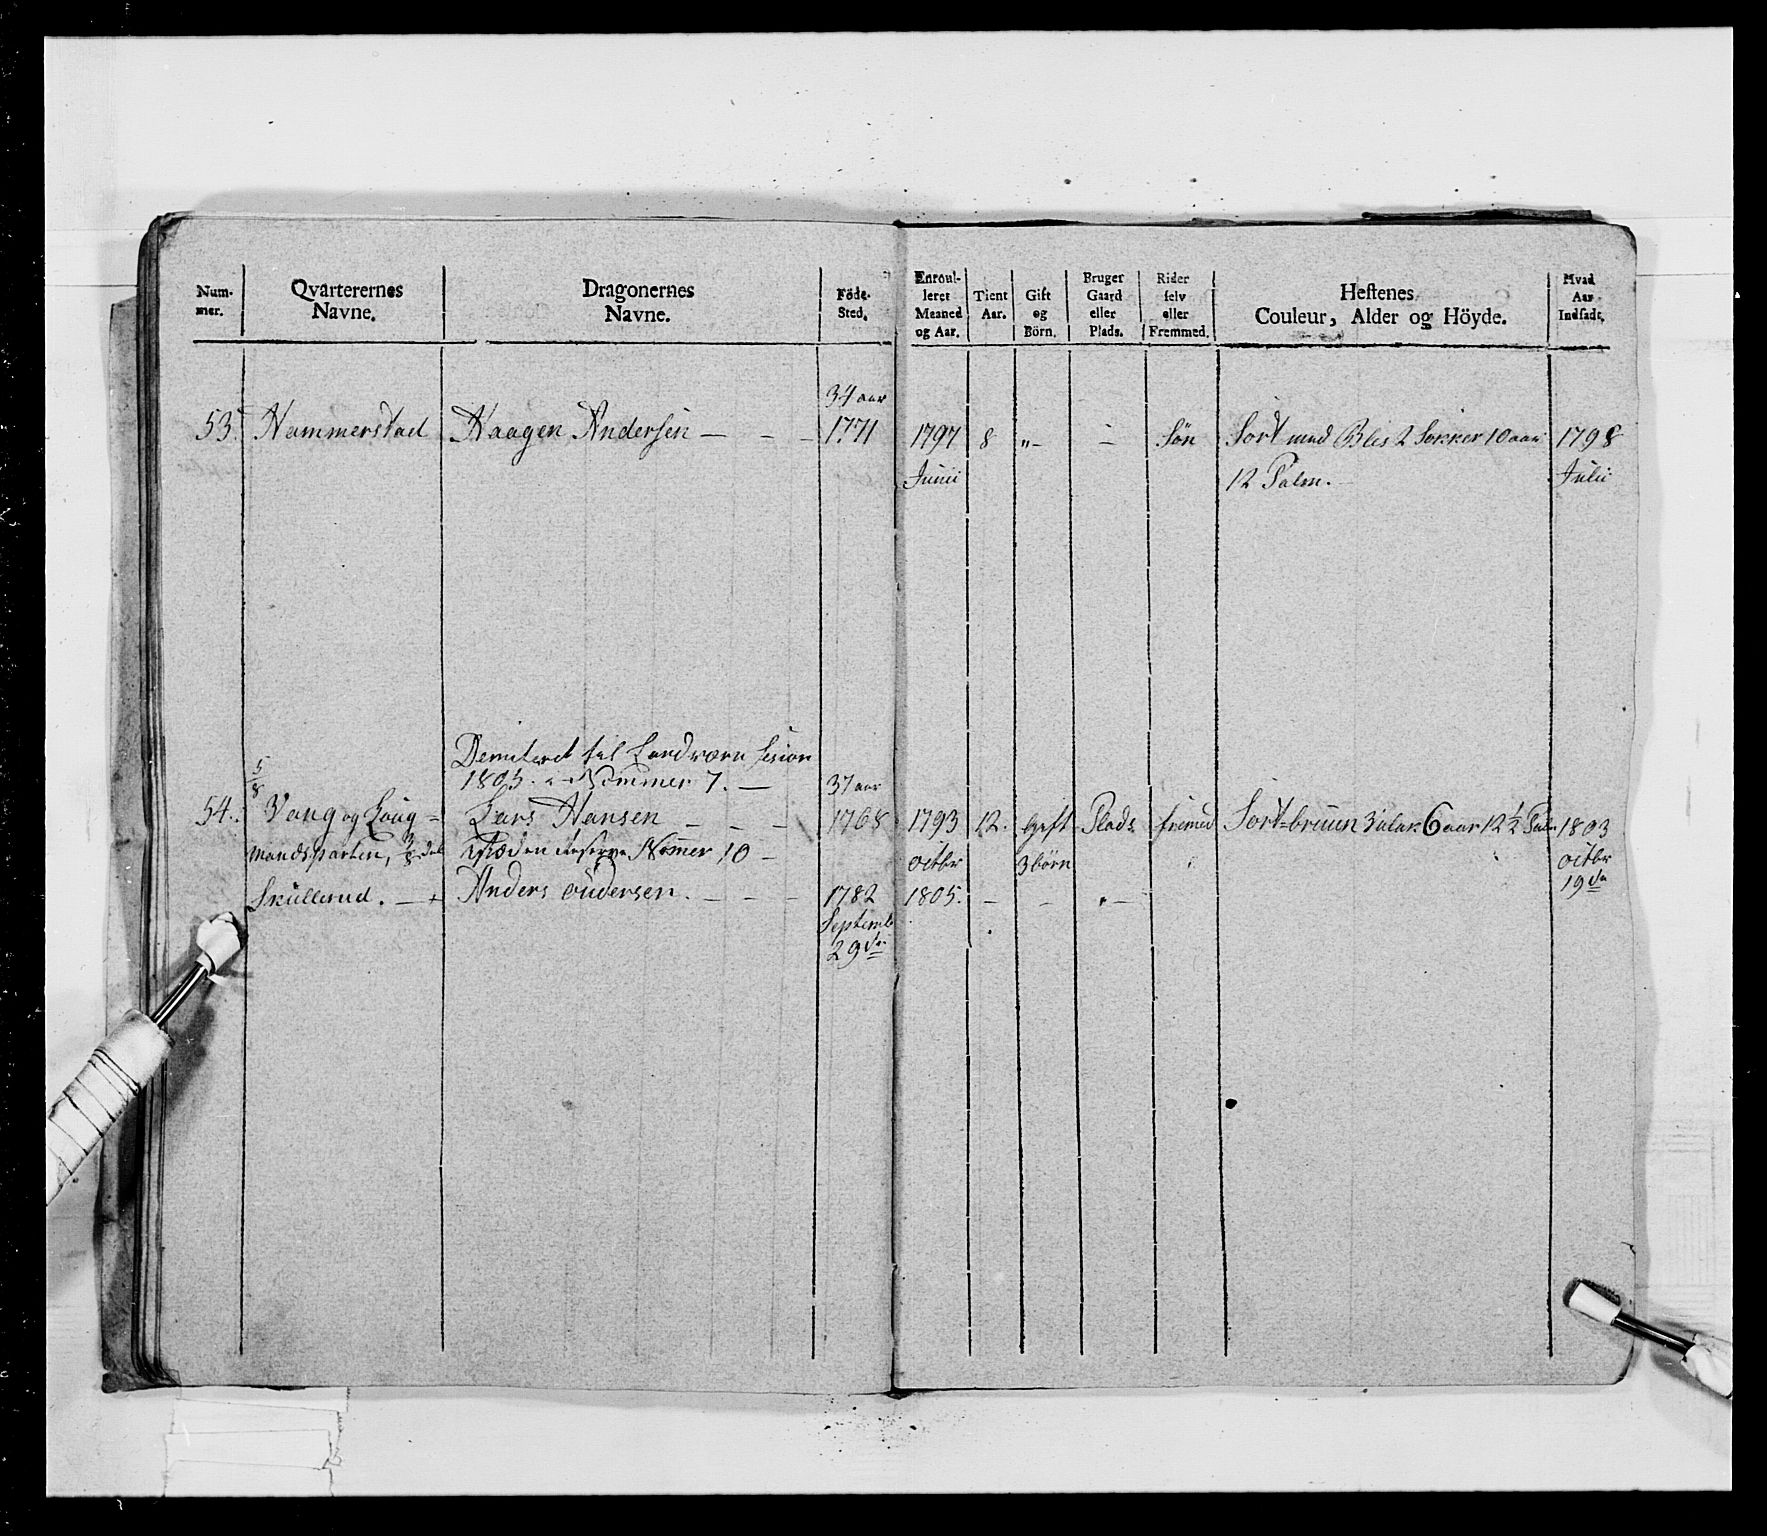 Num-
mer.
Qvarterernes
Navne.
Dragonernes
Navne.
Föde-
Sted.
Enroul-
leret
Maaned
og Aar.
Tient
Aar.
Gift
og
Börn.
Bruger
Gaard
eller
Plads.
Rider
selv
eller
Fremmed.
Hestenes
Couleur, Alder og Höyde.
Hvad
Aar
Indsadt.
34 aar
53. Hammerstad Haagen Andersen — — — 1771 1797 8 „— — Søn Sort med Blis 2 Sokker 10 aar 1798
Junii 12 Palm. Julii
Demiteret til Landværn
5/8 1805. Nommer 7. — 37 aar
54. Vang og Laug= Lars Hansen — — — 1768 1793 12. Gift Plads fremed Sort=bruun 6 aar 12 ½ Palm 1803
mandsparten, 3/8 del Reserve Nomer 10 — octbr 3 börn octbr
Skullerud. — + Anders — — — 1782 1805. — — „— 19de
Septembr
29de